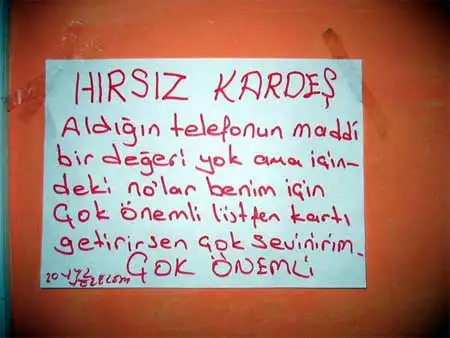 HIRSIZ KARDEŞ
Aldığın telefonun maddi
bir değeri yok ama için-
deki no'lar benim için
Çok önemli listfen kartı
getirirsen çok sevinirim.
ÇOK ÖNEMLİ